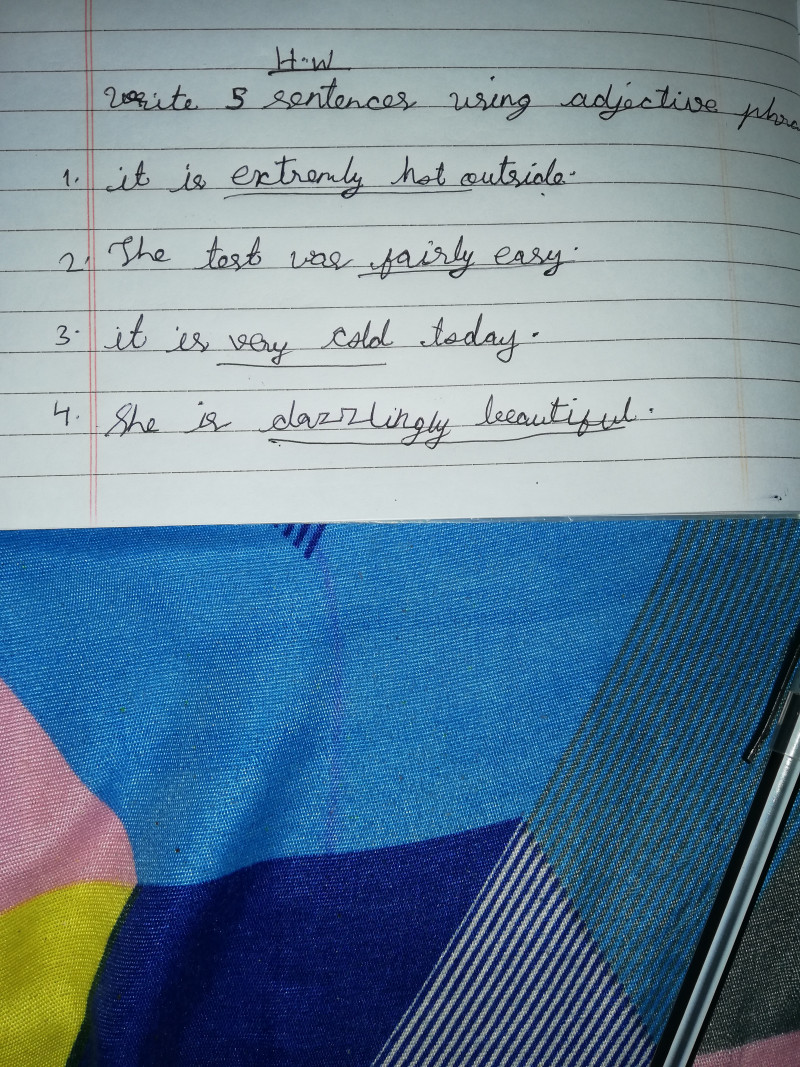 H.W
Write 5 sentences using adjective
1. it is extremly hot outside.
2. The test was fairly easy.
3. it is very cold today.
4. She is dazzlingly beautiful.